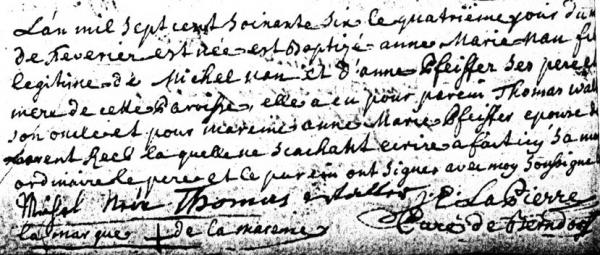 L'an mil Sept cent Soixante Six le quatriême jour d'u
de Feverier est née est Baptizé anne Marie Nau fi
legitime de Michel nau et d'anne Pfeiffer Ses pere et
mere de cette Parroisse, elle a eu pour parein Thomas Wal
son oncle et pour mareine anne Marie Pfeiffer epouse d
Laurent Reeb la quelle ne Scachant ecrire a fait icy Sa m
ordinaire le pere et le parein ont Signer avec moy Soussigne
Michel Nau Thomas J. C. La Pierre
la marque + de la mareine Curé de Berndorf